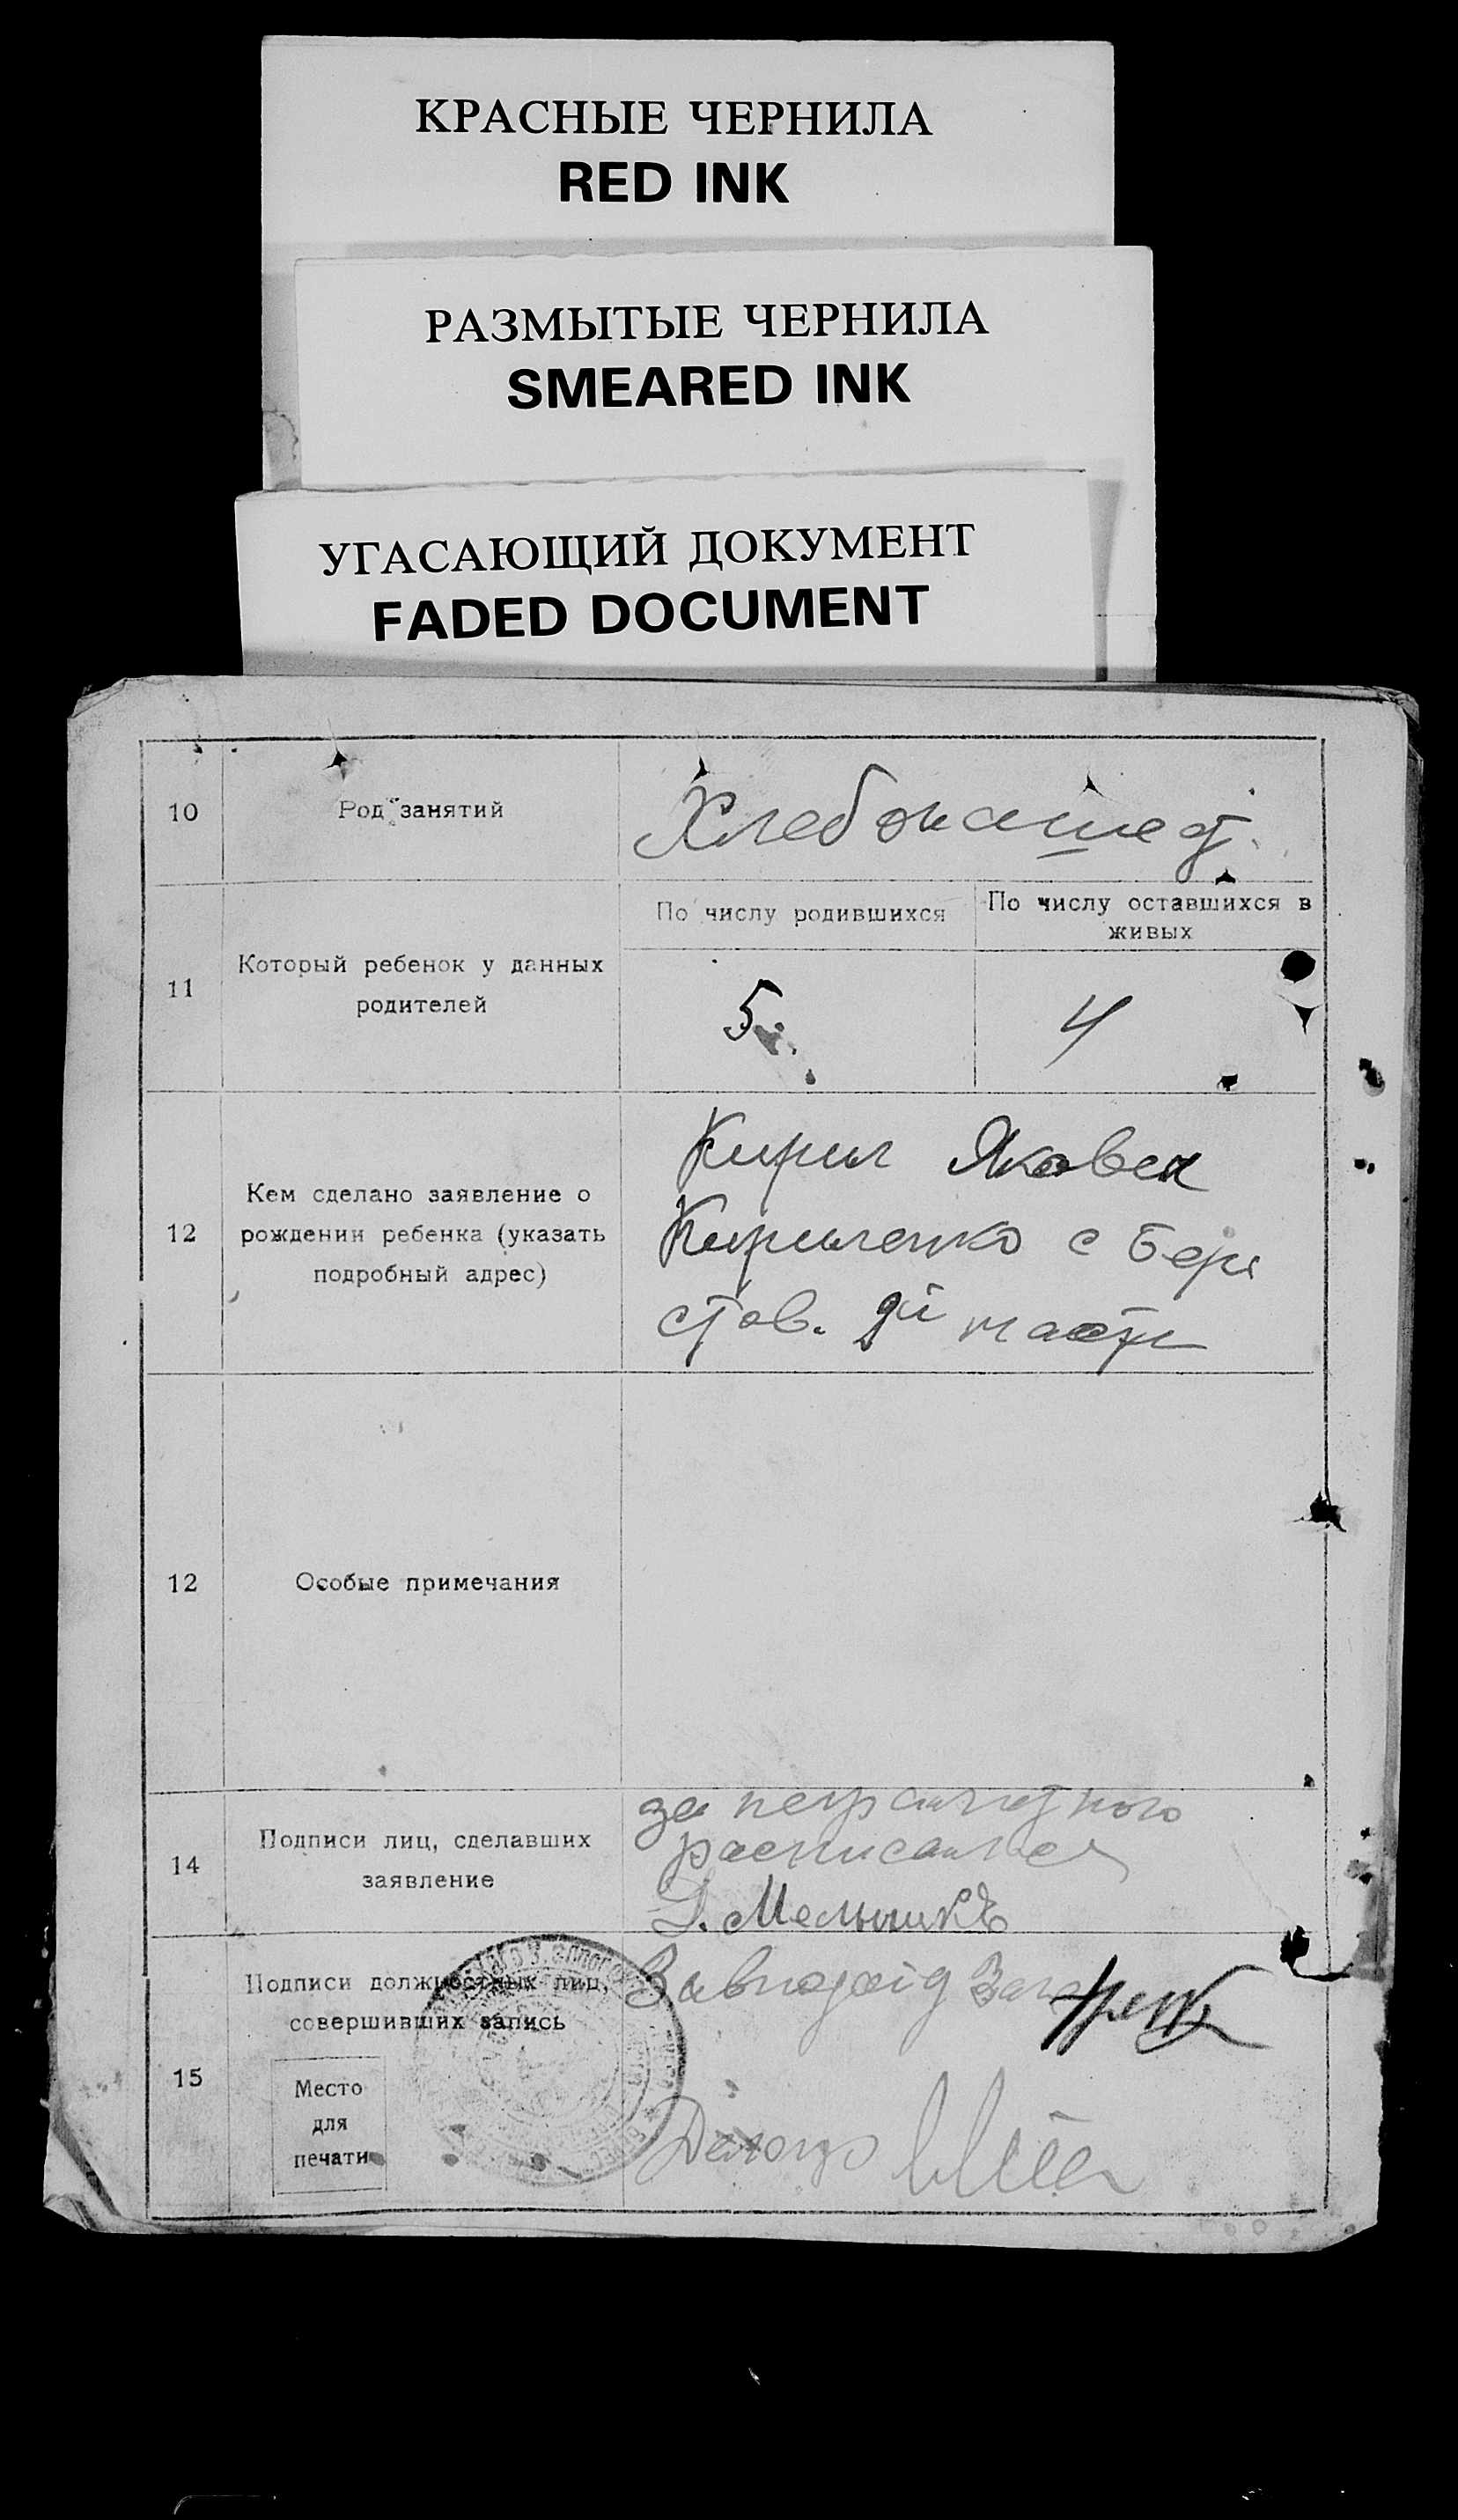 КРАСНЫЕ ЧЕРНИЛА
RED INK
РАЗМЫТЫЕ ЧЕРНИЛА
SMEARED INK
УГАСАЮЩИЙ ДОКУМЕНТ
FADED DOCUMENT
10
Род занятий
Хлебопашец
11
Который ребенок у данных
родителей
По числу родившихся
5
По числу оставшихся в
живых
4
12
Кем сделано заявление о
рождении ребенка (указать
подробный адрес)
Кирил Яковен
Кириленко с Бере
стов. 2й части
12
Особые примечания
14
Подписи лиц, сделавших
заявление
за неграмотного
расписался
15
Подписи должностных лиц,
совершивших запись
Место
для
печати